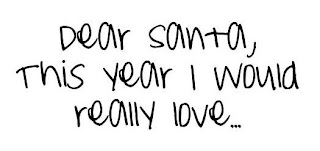 Dear Santa,
This year I would
really love...